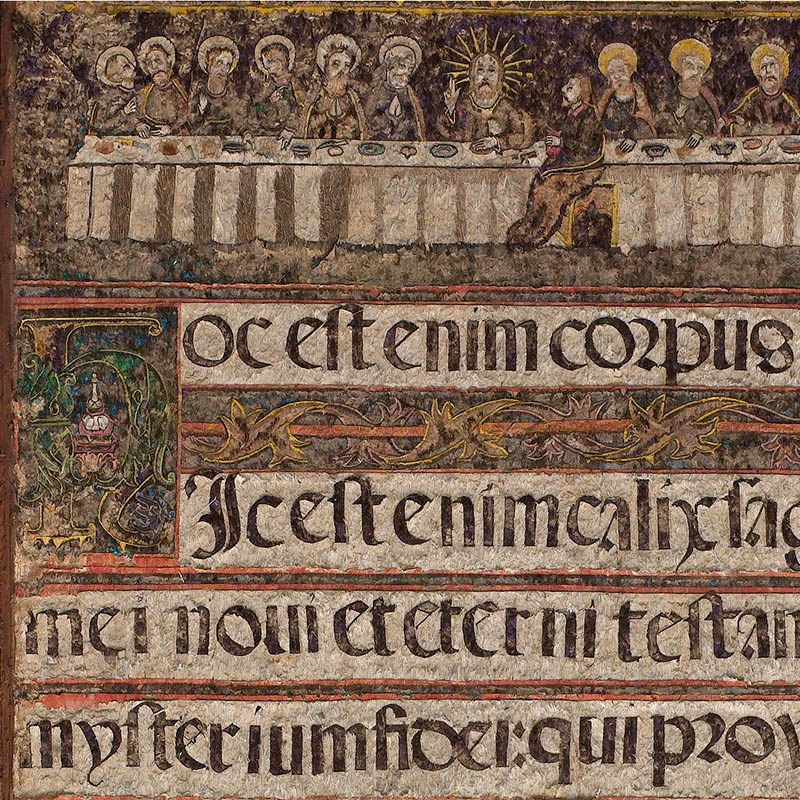 Hoc est enim corpus
Ic est enim calix sag
mei noui et eterni testam
mysterium fidei: qui pro v